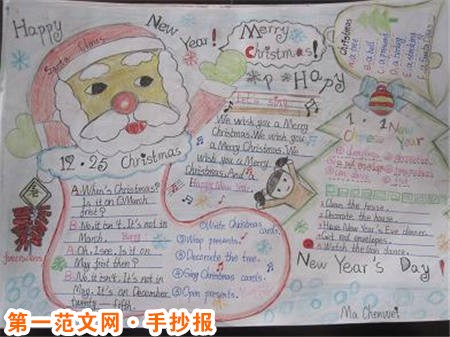 Happy New Year!
Merry Christmas!
Happy
Santa Claus
Christmas
A. a tree
B. a bell
C. a present
E. a stocking
Let's sing
We wish you a Merry
Christmas. We wish you
a Merry Christmas. We
wish you a Merry
Christmas. And a
Happy New Year.
12.25 Christmas
A: When's Christmas?
Is it on March
first?
B: No, it isn't. It's not in
March.
A: Oh, I see. Is it on
May first then?
B: No, it isn't. It's not in
May. It is on December
twenty-fifth.
① Write Christmas
cards.
② Wrap presents.
③ Decorate the tree.
④ Sing Christmas cards.
⑤ Open presents.
firecrackers
1.1 New
Chinese Year
Clean the house.
Decorate the house.
Have New Year's Eve dinner.
Get red envelopes.
Watch the lion dance.
New Year's Day!
Ma Chenwei
第一范文网·手抄报